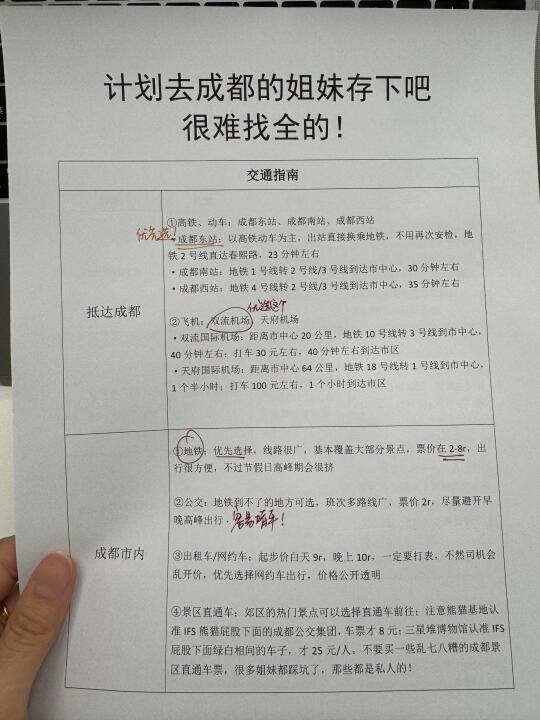 计划去成都的姐妹存下吧
很难找全的！
交通指南
抵达成都
①高铁、动车：成都东站、成都南站、成都西站
优先选！
·成都东站：以高铁动车为主，出站直接换乘地铁，不用再次安检，地
铁 2 号线直达春熙路，23 分钟左右
·成都南站：地铁 1 号线转 2 号线/3 号线到达市中心，30 分钟左右
·成都西站：地铁 4 号线转 2 号线/3 号线到达市中心，35 分钟左右
优选这个
②飞机：双流机场 天府机场
·双流国际机场：距离市中心 20 公里，地铁 10 号线转 3 号线到市中心，
40 分钟左右；打车 30 元左右，40 分钟左右到达市区
·天府国际机场：距离市中心 64 公里，地铁 18 号线转 1 号线到市中心，
1 个半小时；打车 100 元左右，1 个小时到达市区
成都市内
①地铁：优先选择，线路很广，基本覆盖大部分景点，票价在 2-8r，出
行很方便，不过节假日高峰期会很挤
②公交：地铁到不了的地方可选，班次多路线广，票价 2r，尽量避开早
晚高峰出行，容易晕车！
③出租车/网约车：起步价白天 9r，晚上 10r，一定要打表，不然司机会
乱开价，优先选择网约车出行，价格公开透明
④景区直通车：郊区的热门景点可以选择直通车前往：注意熊猫基地认
准 IFS 熊猫屁股下面的成都公交集团，车票才 8 元；三星堆博物馆认准 IFS
屁股下面绿白相间的车子，才 25 元/人。不要买一些乱七八糟的成都景
区直通车票，很多姐妹都踩坑了，那些都是私人的！